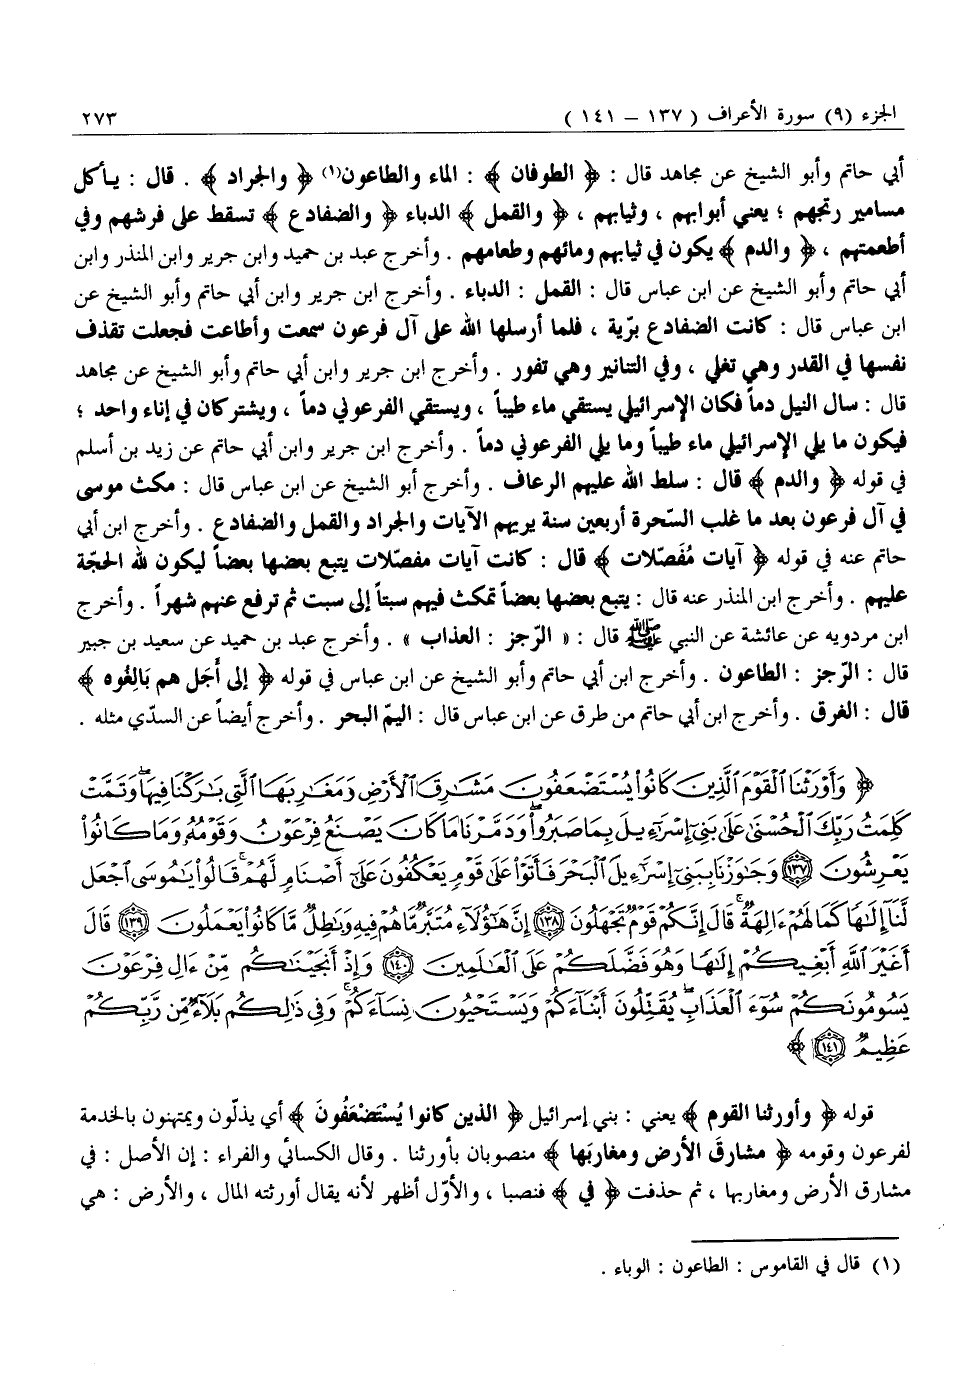 الجزء (٩) سورة الأعراف ( ١٣٧ – ١٤١ ) ٢٧٣
أبي حاتم وأبو الشيخ عن مجاهد قال : ﴿ الطوفان ﴾ : الماء والطاعون(١) ﴿ والجراد ﴾ . قال : يأكل
مسامير رتجهم ؛ يعني أبوابهم ، وثيابهم ، ﴿ والقمل ﴾ الدباء ﴿ والضفادع ﴾ تسقط على فرشهم وفي
أطعمتهم ، ﴿ والدم ﴾ يكون في ثيابهم ومائهم وطعامهم . وأخرج عبد بن حميد وابن جرير وابن المنذر وابن
أبي حاتم وأبو الشيخ عن ابن عباس قال : القمل : الدباء . وأخرج ابن جرير وابن أبي حاتم وأبو الشيخ عن
ابن عباس قال : كانت الضفادع برّية ، فلما أرسلها الله على آل فرعون سمعت وأطاعت فجعلت تقذف
نفسها في القدر وهي تغلي ، وفي التنانير وهي تفور . وأخرج ابن جرير وابن أبي حاتم وأبو الشيخ عن مجاهد
قال : سال النيل دماً فكان الإسرائيلي يستقي ماء طيباً ، ويستقي الفرعوني دماً ، ويشتركان في إناء واحد ؛
فيكون ما يلي الإسرائيلي ماء طيباً وما يلي الفرعوني دماً . وأخرج ابن جرير وابن أبي حاتم عن زيد بن أسلم
في قوله ﴿ والدم ﴾ قال : سلط الله عليهم الرعاف . وأخرج أبو الشيخ عن ابن عباس قال : مكث موسى
في آل فرعون بعد ما غلب السّحرة أربعين سنة يريهم الآيات والجراد والقمل والضفادع . وأخرج ابن أبي
حاتم عنه في قوله ﴿ آيات مُفَصّلات ﴾ قال : كانت آيات مفصّلات يتبع بعضها بعضاً ليكون لله الحجّة
عليهم . وأخرج ابن المنذر عنه قال : يتبع بعضها بعضاً تمكث فيهم سبتاً إلى سبت ثم ترفع عنهم شهراً . وأخرج
ابن مردويه عن عائشة عن النبي ﷺ قال : « الرّجز : العذاب » . وأخرج عبد بن حميد عن سعيد بن جبير
قال : الرّجز : الطاعون . وأخرج ابن أبي حاتم وأبو الشيخ عن ابن عباس في قوله ﴿ إلى أَجَل هم بَالِغُوه ﴾
قال : الغرق . وأخرج ابن أبي حاتم من طرق عن ابن عباس قال : اليمّ البحر . وأخرج أيضاً عن السدّي مثله .
﴿ وَأَوْرَثْنَا ٱلْقَوْمَ ٱلَّذِينَ كَانُوا۟ يُسْتَضْعَفُونَ مَشَـٰرِقَ ٱلْأَرْضِ وَمَغَـٰرِبَهَا ٱلَّتِى بَـٰرَكْنَا فِيهَا ۖ وَتَمَّتْ
كَلِمَتُ رَبِّكَ ٱلْحُسْنَىٰ عَلَىٰ بَنِىٓ إِسْرَٰٓءِيلَ بِمَا صَبَرُوا۟ ۖ وَدَمَّرْنَا مَا كَانَ يَصْنَعُ فِرْعَوْنُ وَقَوْمُهُۥ وَمَا كَانُوا۟
يَعْرِشُونَ ١٣٧ وَجَـٰوَزْنَا بِبَنِىٓ إِسْرَٰٓءِيلَ ٱلْبَحْرَ فَأَتَوْا۟ عَلَىٰ قَوْمٍ يَعْكُفُونَ عَلَىٰٓ أَصْنَامٍ لَّهُمْ ۚ قَالُوا۟ يَـٰمُوسَى ٱجْعَل
لَّنَآ إِلَـٰهًا كَمَا لَهُمْ ءَالِهَةٌ ۚ قَالَ إِنَّكُمْ قَوْمٌ تَجْهَلُونَ ١٣٨ إِنَّ هَـٰٓؤُلَآءِ مُتَبَّرٌ مَّا هُمْ فِيهِ وَبَـٰطِلٌ مَّا كَانُوا۟ يَعْمَلُونَ ١٣٩ قَالَ
أَغَيْرَ ٱللَّهِ أَبْغِيكُمْ إِلَـٰهًا وَهُوَ فَضَّلَكُمْ عَلَى ٱلْعَـٰلَمِينَ ١٤٠ وَإِذْ أَنجَيْنَـٰكُم مِّنْ ءَالِ فِرْعَوْنَ
يَسُومُونَكُمْ سُوٓءَ ٱلْعَذَابِ ۖ يُقَتِّلُونَ أَبْنَآءَكُمْ وَيَسْتَحْيُونَ نِسَآءَكُمْ ۚ وَفِى ذَٰلِكُم بَلَآءٌ مِّن رَّبِّكُمْ
عَظِيمٌ ١٤١ ﴾
قوله ﴿ وأورثنا القوم ﴾ يعني : بني إسرائيل ﴿ الذين كانوا يُسْتَضْعَفُونَ ﴾ أي يذلّون ويمتهنون بالخدمة
لفرعون وقومه ﴿ مشارقَ الأرض ومغاربَها ﴾ منصوبان بأورثنا . وقال الكسائي والفراء : إن الأصل : في
مشارق الأرض ومغاربها ، ثم حذفت ﴿ في ﴾ فنصبا ، والأوّل أظهر لأنه يقال أورثته المال ، والأرض : هي
(١) قال في القاموس : الطاعون : الوباء .